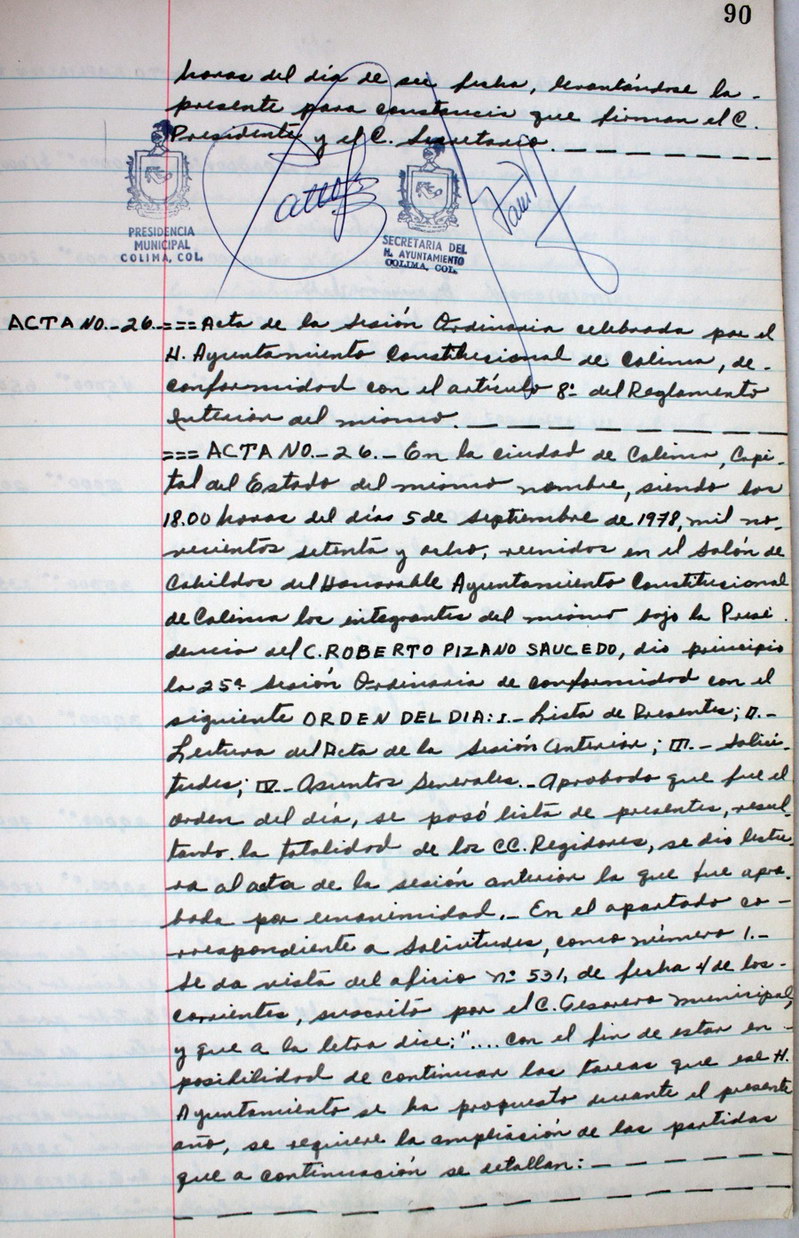 90
horas del día de su fecha, levantándose la -
presente para constancia que firman el C.
Presidente y el C. Secretario. — — — — — — —
PRESIDENCIA
MUNICIPAL
COLIMA, COL.
SECRETARIA DEL
H. AYUNTAMIENTO
COLIMA, COL.
ACTA NO.-26.-=== Acta de la Sesión Ordinaria celebrada por el
H. Ayuntamiento Constitucional de Colima, de-
conformidad con el artículo 8º del Reglamento
Interior del mismo. — — — — — — — — — —
=== ACTA NO.-26.- En la ciudad de Colima, Capi-
tal del Estado del mismo nombre, siendo las
18.00 horas del días 5 de septiembre de 1978, mil no-
vecientos setenta y ocho, reunidos en el Salón de
Cabildos del Honorable Ayuntamiento Constitucional
de Colima los integrantes del mismo bajo la Presi-
dencia del C. ROBERTO PIZANO SAUCEDO, dio principio
la 25ª Sesión Ordinaria de conformidad con el
siguiente ORDEN DEL DIA: I.- Lista de Presentes; II.-
Lectura del Acta de la Sesión Anterior; III.- Solici-
tudes; IV.- Asuntos Generales.- Aprobado que fue el
orden del día, se pasó lista de presentes, resul-
tando la totalidad de los CC. Regidores, se dio lectu-
ra al acta de la sesión anterior la que fue apro-
bada por unanimidad.- En el apartado co-
rrespondiente a Solicitudes, como número 1.-
Se da vista del oficio nº 531, de fecha 4 de los-
corrientes, suscrito por el C. Tesorero Municipal,
y que a la letra dice: ".... con el fin de estar en -
posibilidad de continuar las tareas que ese H.
Ayuntamiento se ha propuesto durante el presente
año, se requiere la ampliación de las partidas
que a continuación se detallan: — — — — — — —